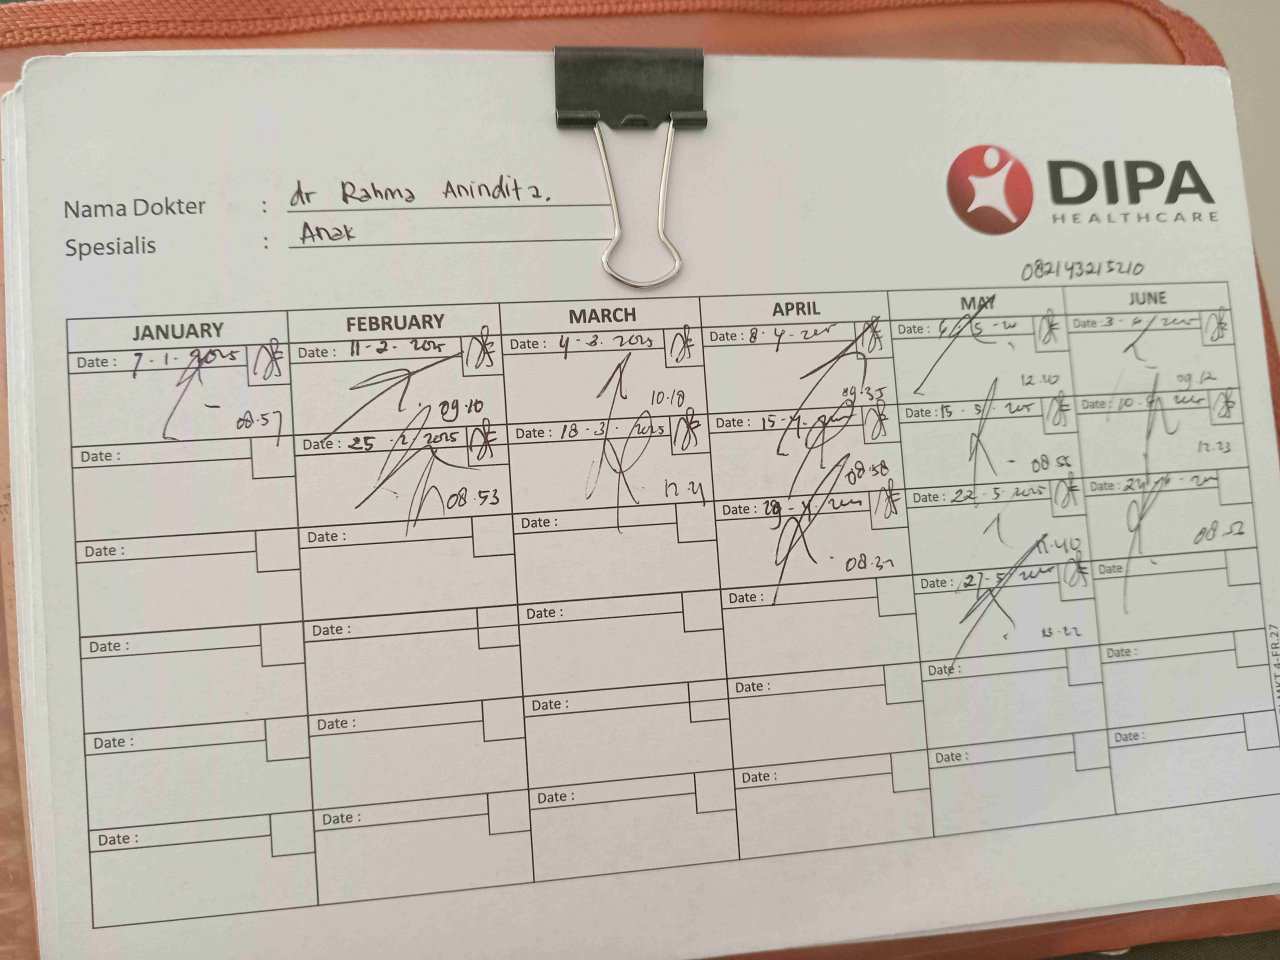 Nama Dokter : dr Rahma Anindita.
Spesialis : Anak
DIPA
HEALTHCARE
082143215210
JANUARY FEBRUARY MARCH APRIL MAY JUNE
Date : 7 - 1 - 2025
08.57
Date :
Date :
Date :
Date :
Date :
Date : 11 - 2 - 2025
09.10
Date : 25 - 2 - 2025
08.53
Date :
Date :
Date :
Date :
Date : 4 - 3 - 2025
10.18
Date : 18 - 3 - 2025
Date :
Date :
Date :
Date :
Date : 8 - 4 - 2025
09.35
Date : 15 - 4 - 2025
08.58
Date : 29 - 4 - 2025
Date :
Date :
Date :
Date : 6 - 5 - 20
Date : 15 - 5 - 2025
08.55
Date : 22 - 5 - 2025
11.40
Date : 27 - 5 - 2025
13.22
Date :
Date :
Date : 3 - 6 - 2025
09.12
Date : 10 - 6 - 2025
12.23
Date :
Date
Date :
Date :